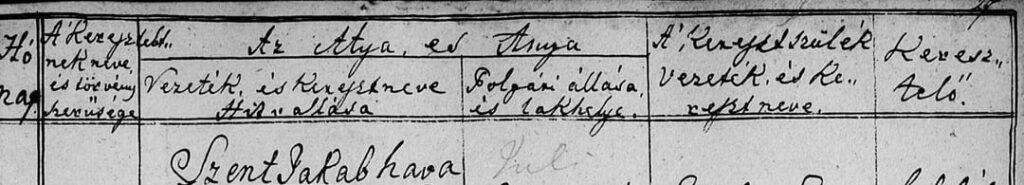 Hó
nap.
A' Kereszteltt
nek neve,
és törvény
szerűsége
Az Atya, es Anya
Vezeték, és Keresztneve
Hit vallása
Polgári állása,
és lakhelye.
A' Keresztszülék
Vezeték, és Ke„
resztneve.
Keresz„
telő.
Szent Jakab hava
Juli